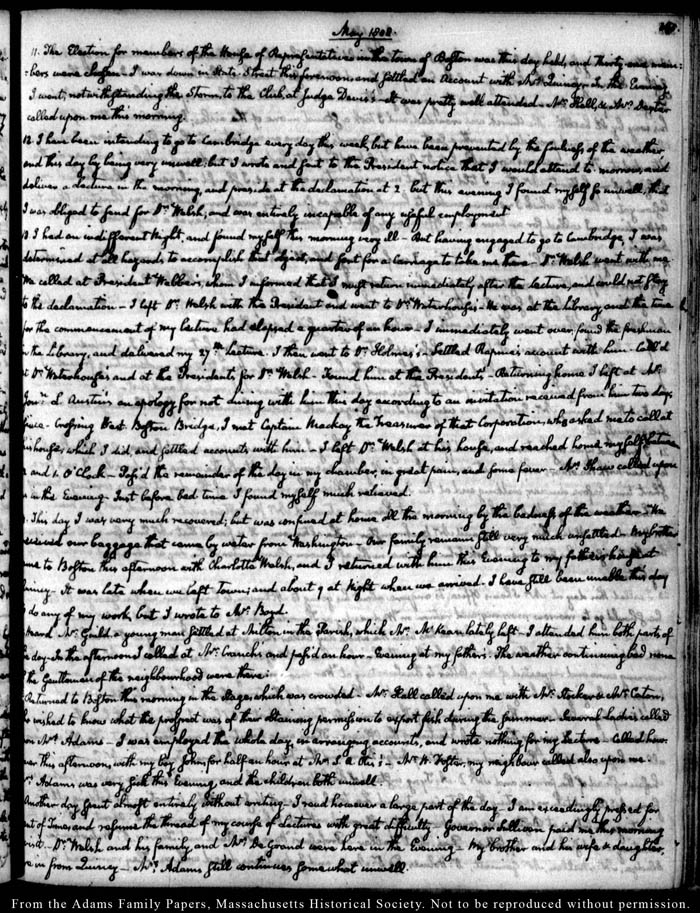 May 1808.
11. The Election for members of the House of Representatives in the town of Boston was this day held, and thirty nine mem-
-bers were chosen. I was down in State Street this forenoon, and settled an Account with Mr. Quincy. In the Evening
I went, notwithstanding the Storm to the Club at Judge Davis's. It was pretty well attended. Mr. Hall, & Mr. Dexter
called upon me this morning.
12. I have been intending to go to Cambridge every day this week, but have been prevented by the foulness of the weather,
and this day by being very unwell; but I wrote and sent to the President notice that I would attend to-morrow, and
deliver a lecture in the morning, and preside at the declamation at 2. but this evening I found myself so unwell, that
I was obliged to send for Dr. Welsh, and was entirely incapable of any useful employment
13 I had an indifferent Night, and found myself this morning very ill — But having engaged to go to Cambridge, I was
determined at all hazards to accomplish that object, and sent for a Carriage to take me there — Dr. Welsh went with me.
We called at President Webber's, whom I informed that I must return immediately after the lecture, and could not stay
to the declamation — I left Dr. Welsh with the President and went to Dr. Waterhouse's. He was at the Library, and the time
for the commencement of my lecture had elapsed a quarter of an hour — I immediately went over, found the freshman
in the Library, and delivered my 27th. Lecture. I then went to Dr. Holmes's — Settled account with him — Call'd
at Dr. Waterhouse's and at the Presidents for Dr. Welsh — Found him at the Presidents — Returning home I left at Mr.
Jonn. L. Austin's an apology for not dining with him this day according to an invitation received from him two days
since. Crossing West Boston Bridge, I met Captain Mackay the Treasurer of that Corporation, who asked me to call at
his house, which I did and settled accounts with him — I left Dr. Welsh at his house, and reached home myself between
and 4 O'Clock — Pass'd the remainder of the day in my chamber, in great pain, and some fever — Mr. Shaw called upon
in the Evening. Just before bed time I found myself much relieved.
This day I was very much recovered; but was confined at home all the morning by the badness of the weather. We
received our baggage that came by water from Washington — Our family remain still very much unsettled — My brother
came to Boston this afternoon with Charlotte Welsh, and I returned with him this Evening to my father's house at
Quincy — It was late when we left town; and about 9 at Night when we arrived. I have still been unable this day
do any of my work, but I wrote to Mr. Boyd.
Heard Mr. Gould a young man settled at Milton in the Parish, which Mr. McKean lately left. I attended him both parts of
the day. In the afternoon I called at Mr. Cranch's and pass'd an hour — Evening at my father's. The weather continuing bad none
of the Gentlemen of the neighbourhood were there.
Returned to Boston this morning in the Stage, which was crowded — Mr. Hall called upon me with Mr. Stocker & Mr. Caton,
who wished to know what the prospect was of their obtaining permission to export fish during the summer. Several Ladies called
on Mrs. Adams — I was employed the whole day, in arranging accounts, and wrote nothing for my Lecture — Called how-
ever this afternoon, with my boy John, for half an hour at Mr. S. A. Otis's — Mr. W. Foster, my neighbour called also upon me.
Mrs. Adams was very sick this Evening, and the children both unwell.
Another day spent almost entirely without writing — I read however a large part of the day — I am exceedingly pressed for
want of Time, and resume the thread of my course of Lectures with great difficulty. Governor Sullivan paid me this morning
a visit. Dr. Welsh, and his family, and Mr. De Grand were here in the Evening — My brother and his wife & daughter,
came in from Quincy — Mrs. Adams still continues somewhat unwell.
From the Adams Family Papers, Massachusetts Historical Society. Not to be reproduced without permission.